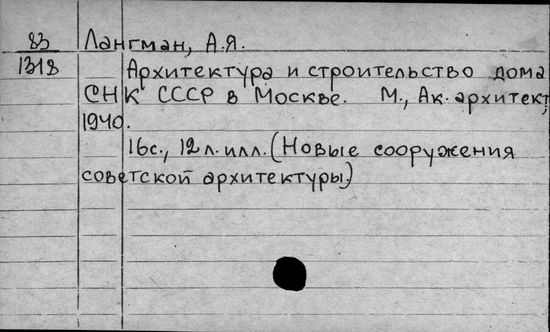 83 Лангман, А.Я.
1318 Архитектура и строительство дома
СНК СССР в Москве. М., Ак. архитект,
1940.
16с., 12 л. илл. (Новые сооружения
советской архитектуры.)